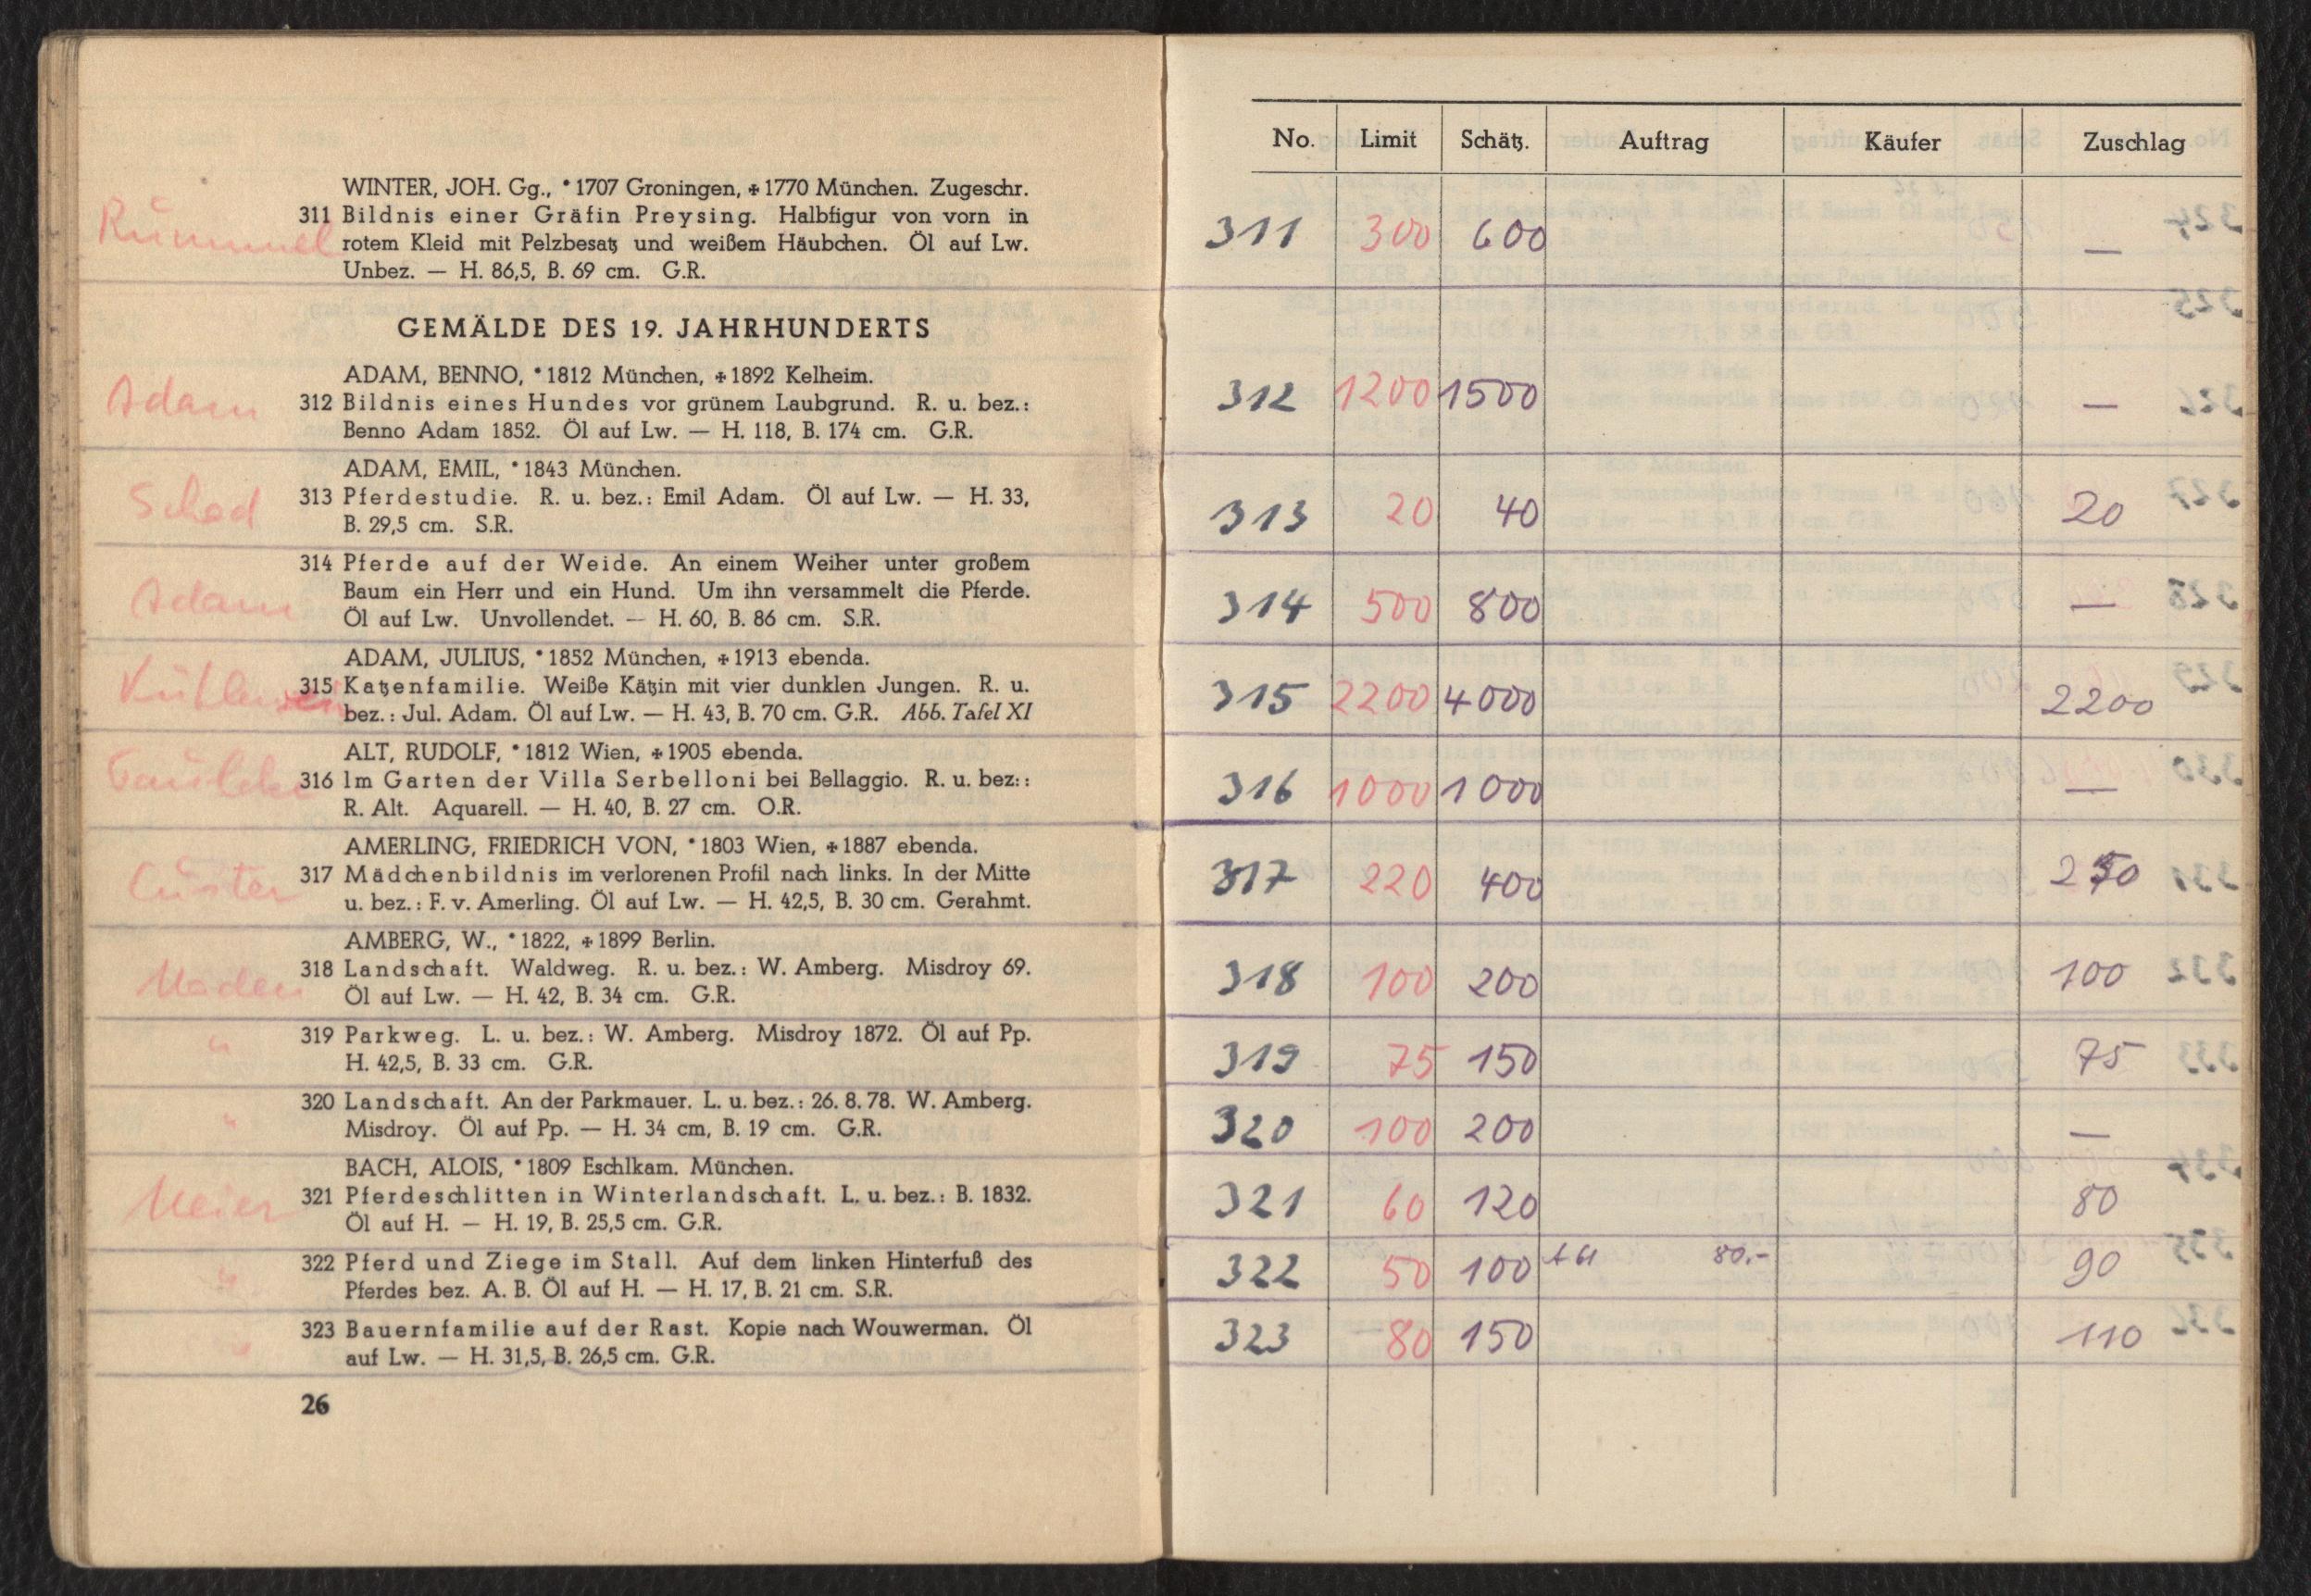 WINTER, JOH. Gg., *1707 Groningen, ✠1770 München. Zugeschr.
Rümmel 311 Bildnis einer Gräfin Preysing. Halbfigur von vorn in
rotem Kleid mit Pelzbesatz und weißem Häubchen. Öl auf Lw.
Unbez. — H. 86,5, B. 69 cm. G.R.
GEMÄLDE DES 19. JAHRHUNDERTS
ADAM, BENNO, *1812 München, ✠1892 Kelheim.
Adam 312 Bildnis eines Hundes vor grünem Laubgrund. R. u. bez.:
Benno Adam 1852. Öl auf Lw. — H. 118, B. 174 cm. G.R.
ADAM, EMIL, *1843 München.
Schad 313 Pferdestudie. R. u. bez.: Emil Adam. Öl auf Lw. — H. 33,
B. 29,5 cm. S.R.
314 Pferde auf der Weide. An einem Weiher unter großem
Adam Baum ein Herr und ein Hund. Um ihn versammelt die Pferde.
Öl auf Lw. Unvollendet. — H. 60, B. 86 cm. S.R.
ADAM, JULIUS, *1852 München, ✠1913 ebenda.
315 Katzenfamilie. Weiße Kätzin mit vier dunklen Jungen. R. u.
bez.: Jul. Adam. Öl auf Lw. — H. 43, B. 70 cm. G.R. Abb. Tafel XI
ALT, RUDOLF, *1812 Wien, ✠1905 ebenda.
316 Im Garten der Villa Serbelloni bei Bellaggio. R. u. bez::
R. Alt. Aquarell. — H. 40, B. 27 cm. O.R.
AMERLING, FRIEDRICH VON, *1803 Wien, ✠1887 ebenda.
Cüster 317 Mädchenbildnis im verlorenen Profil nach links. In der Mitte
u. bez.: F. v. Amerling. Öl auf Lw. — H. 42,5, B. 30 cm. Gerahmt.
AMBERG, W., *1822, ✠1899 Berlin.
318 Landschaft. Waldweg. R. u. bez.: W. Amberg. Misdroy 69.
Öl auf Lw. — H. 42, B. 34 cm. G.R.
" 319 Parkweg. L. u. bez.: W. Amberg. Misdroy 1872. Öl auf Pp.
H. 42,5, B. 33 cm. G.R.
" 320 Landschaft. An der Parkmauer. L. u. bez.: 26. 8. 78. W. Amberg.
Misdroy. Öl auf Pp. — H. 34 cm, B. 19 cm. G.R.
BACH, ALOIS, *1809 Eschlkam. München.
Meier 321 Pferdeschlitten in Winterlandschaft. L. u. bez.: B. 1832.
Öl auf H. — H. 19, B. 25,5 cm. G.R.
" 322 Pferd und Ziege im Stall. Auf dem linken Hinterfuß des
Pferdes bez. A. B. Öl auf H. — H. 17, B. 21 cm. S.R.
" 323 Bauernfamilie auf der Rast. Kopie nach Wouwerman. Öl
auf Lw. — H. 31,5, B. 26,5 cm. G.R.
26
No. Limit Schätz. Auftrag Käufer Zuschlag
311 300 600 —
312 1200 1500 —
313 20 40 20
314 500 800 —
315 2200 4000 2200
316 1000 1000 —
317 220 400 250
318 100 200 100
319 75 150 75
320 100 200 —
321 60 120 80
322 50 100 80.- 90
323 80 150 110